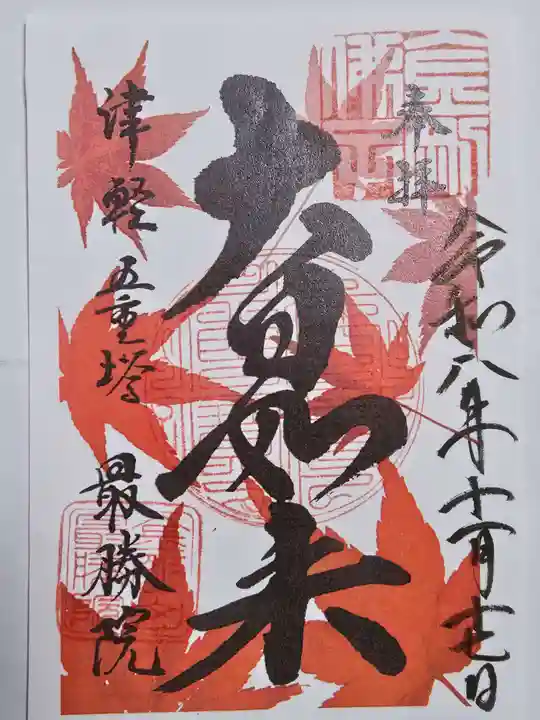 奉拝
令和八年十一月十七日
大日如来
津軽五重塔 最勝院